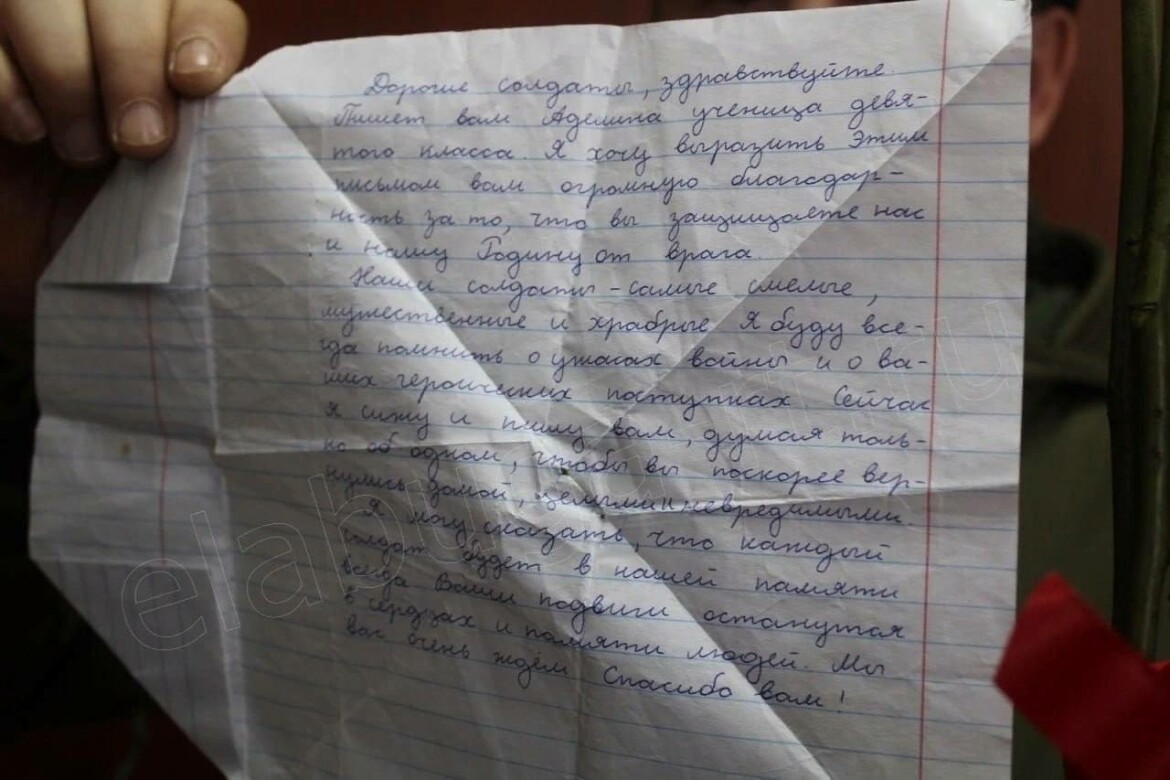 Дорогие солдаты, здравствуйте.
Пишет вам Аделина ученица девя-
того класса. Я хочу выразить этим
письмом вам огромную благодар-
ность за то, что вы защищаете нас
и нашу Родину от врага.
Наши солдаты – самые смелые,
мужественные и храбрые Я буду все-
гда помнить о ужасах войны и о ва-
ших героических поступках Сейчас
я сижу и пишу вам, думая толь-
ко об одном, чтобы вы поскорее вер-
нулись домой, целыми и невредимыми.
Я могу сказать, что каждый
солдат будет в нашей памяти
всегда Ваши подвиги останутся
в сердцах и памяти людей. Мы
вас очень ждём Спасибо вам!